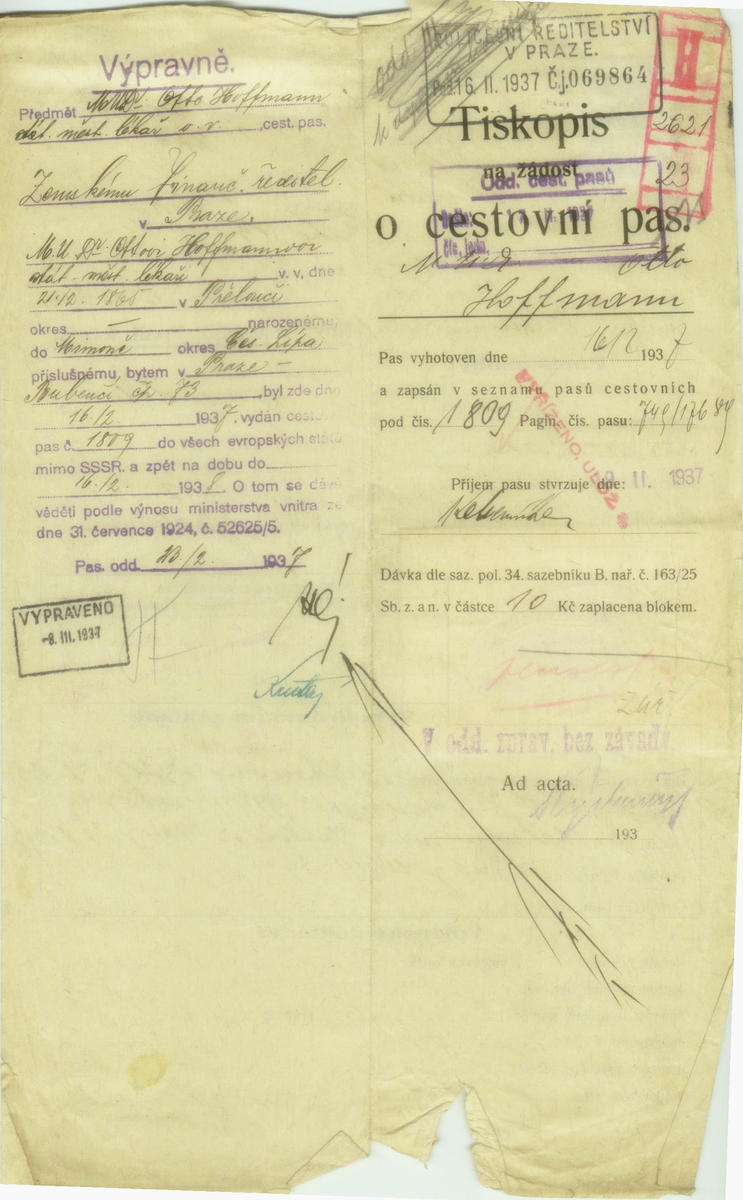 Výpravně.
Předmět MUDr Otto Hoffmann
stát. měst. lékař v. v. , cest. pas.
Zemskému finanč. ředitel.
v Praze.
M.U.Dr Ottovi Hoffmannovi
stát. měst. lékaři v. v, dne
21.12. v Přelouči
okres — narozenému,
do Mimoně okres Čes. Lípa
příslušnému, bytem v Praze –
Bubenči čp. 73 , byl zde dne
16./2. 1937. vydán cesto
pas č. 1809 do všech evropských stát
mimo SSSR. a zpět na dobu do
16./2. 1938. O tom se dáv
věděti podle výnosu ministerstva vnitra ze
dne 31. července 1924, č. 52625/5.
Pas. odd. 23./2. 1937
VYPRAVENO
-8. III. 1937
POLICEJNÍ ŘEDITELSTVÍ
V PRAZE.
16. II. 1937 Čj. 069864
H
2621
23
Tiskopis
na žádost
Odd. cest. pasů
o cestovní pas.
Otto
Hoffmann
Pas vyhotoven dne 16/2 1937
a zapsán v seznamu pasů cestovních
pod čís. 1809 Pagin. čís. pasu: 749/176
VYŘÍZENO, ULOŽ
Příjem pasu stvrzuje dne: II. 1937
Dávka dle saz. pol. 34. sazebníku B. nař. č. 163/25
Sb. z. a n. v částce 10 Kč zaplacena blokem.
V odd. zprav. bez závady.
Ad acta.
193